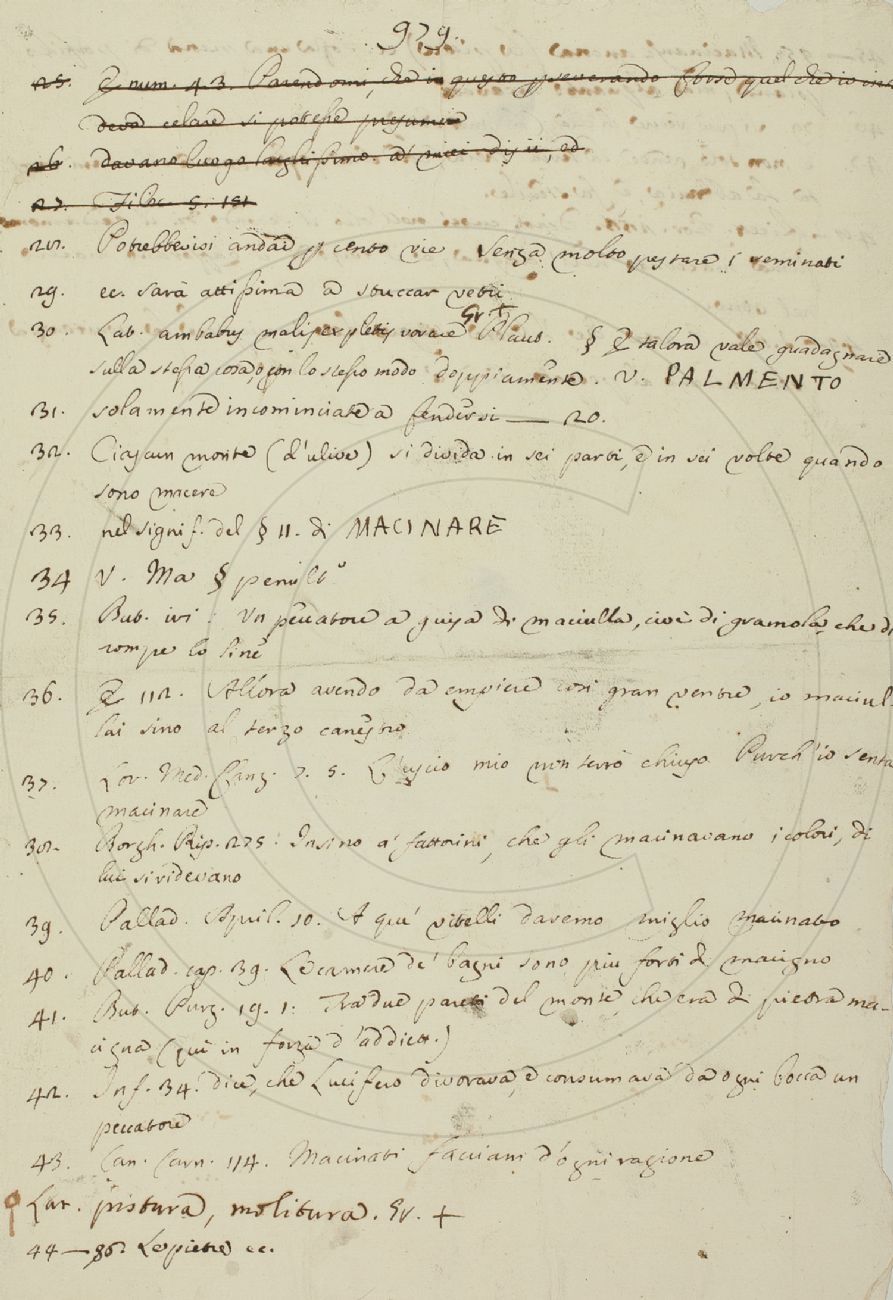 979.
25. E num. 43. Parendomi, che in questo perseverando forse quel che io in
deva celare si potesse presumere
26. davano luogo larghissimo a' miei disii, ed
27. Filoc. 5. 181
28. Potrebbevisi andare p cento vie senza molto pestare i seminati
29. ec. sarà attissima a stuccar vetri
30. Lat. ambabus malis expletis vorare Gr + Plaut. § E talora vale guadagnare
sulla stessa cosa, o con lo stesso modo doppiamente. V. PALMENTO
31. solamente incominciate a fendersi — 20.
32. Ciascun monte (d'ulive) si divida in sei parti, e in sei volte quando
sono macere
33. nel signif. del § 11. di MACINARE
34 V. Ma § penulto
35. But. ivi: Un peccatore a guisa di maciulla, cioè di gramola, che di
rompe lo line
36. E 112. Allora avendo da empiere così gran ventre, io maciul-
lai sino al terzo canestro
37. Lor. Med. Canz. 7. 5. L'uscio mio non terrò chiuso Purch'io senta
macinare
38. Borgh. Rip. 275. Insino a' fattorini, che gli macinavano i colori, di
lui si ridevano
39. Pallad. April. 10. A que' vitelli daremo miglio macinato
40. Pallad. cap. 39. Le camere de' bagni sono più forti di macigno
41. But. Purg. 19. 1: Tra due pareti del monte, che era di pietra ma-
cigna (qui in forza d'addiett.)
42. Inf. 34. dice, che Lucifero divorava, e consumava da ogni bocca un
peccatore
43. Can. Carn. 114. Macinati facciam d'ogni ragione
Lat. pistura, molitura. Gr. +
44 — 36. Le pietre ec.